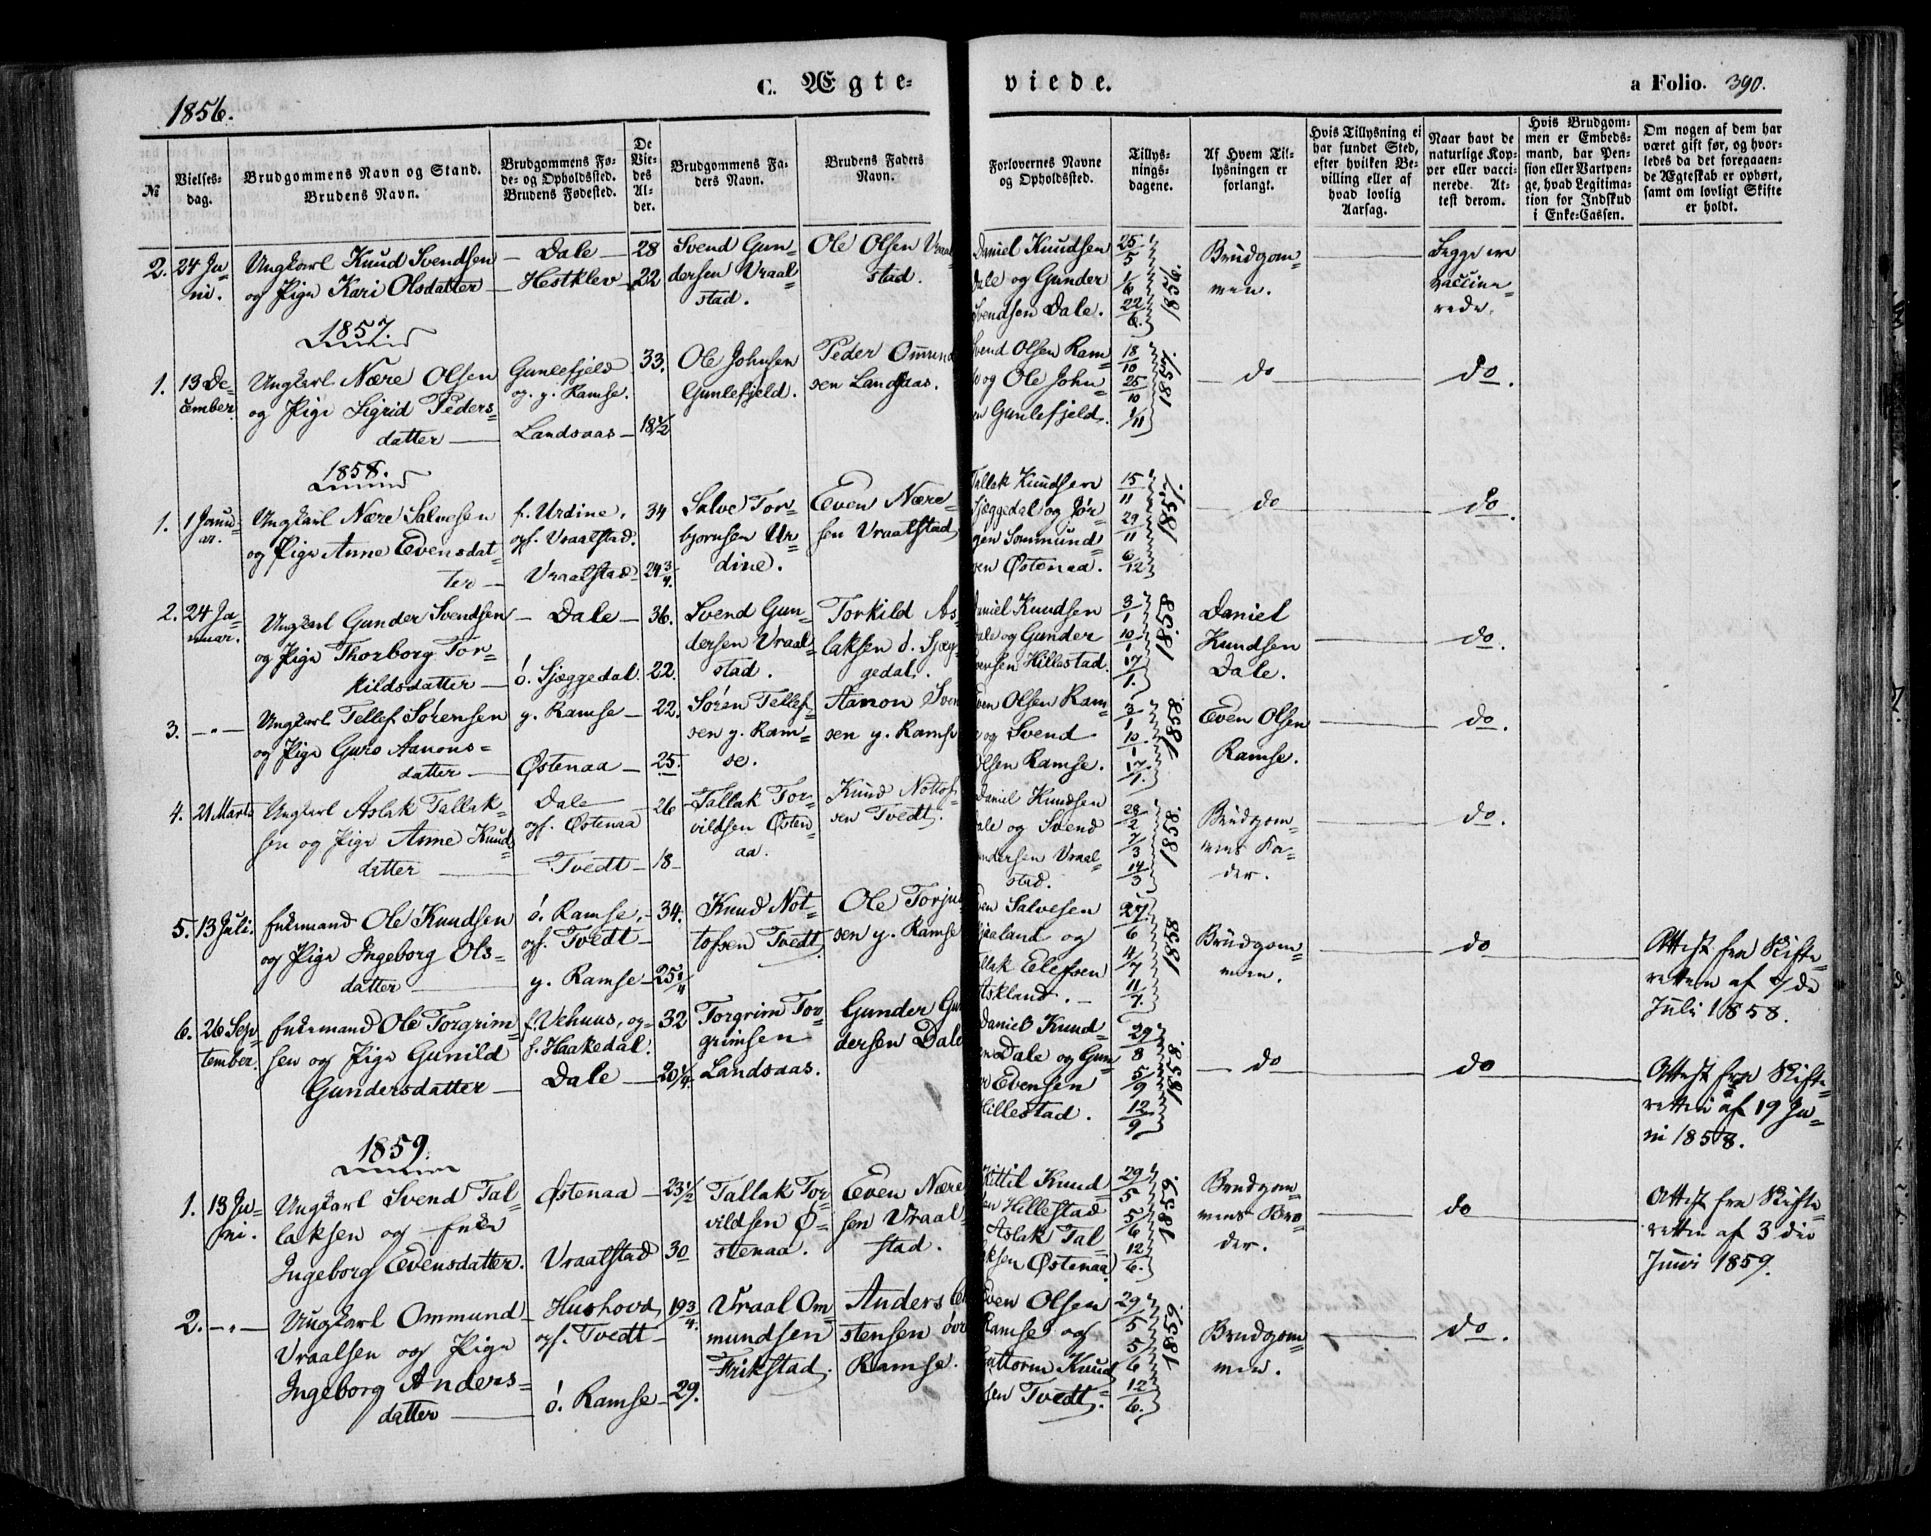 1856.
C. Ægte-
viede.
a Folio. 390.
№
Vielses-
dag.
Brudgommens Navn og Stand.
Brudens Navn.
Brudgommens Fø-
de- og Opholdssted.
Brudens Fødested.
De
Vie-
des
Al-
der.
Brudgommens Fa-
ders Navn.
Brudens Faders
Navn.
Forlovernes Navne
og Opholdssted.
Tillys-
nings-
dagene.
Af Hvem Til-
lysningen er
forlangt.
Hvis Tillysning ei
har fundet Sted,
efter hvilken Be-
villing eller af
hvad lovlig
Aarsag.
Naar havt de
naturlige Kop-
per eller vacci-
nerede. At-
test derom.
Hvis Brudgom-
men er Embeds-
mand, har Pen-
sion eller Vartpen-
ge, hvad Legitima-
tion for Indskud
i Enke-Cassen.
Om nogen af dem har
været gift før, og hvor-
ledes da det foregaaen-
de Ægteskab er ophørt,
samt om lovligt Skifte
er holdt.
2. 24 Ju-
ni.
Ungkarl Knud Svendsen
og Pige Kari Olsdatter
Dale
Hestklev
28
22
Svend Gun-
dersen Vraal-
stad.
Ole Olsen Vraal-
stad.
Daniel Knudsen
Dale og Gunder
Svendsen Dale.
25/5
1/6
22/6.
1856.
Brudgom-
men.
Begge ere
vaccine-
rede.
1857.
1. 13 De-
cember
Ungkarl Nære Olsen
og Pige Sigrid Peders-
datter
Gunlefjeld
og. y. Ramse.
Landsaas
33.
18 1/2
Ole Johnsen
Gunlefjeld.
Peder Ommund
sen Landsaas.
Svend Olsen Ram-
og Ole John-
en Gunlefjeld.
18/10
25/10
1/11
1857.
do
do.
1858.
1. 1 Janu-
ar.
Ungkarl Nære Salvesen
og Pige Anne Evensdat-
ter
f. Urdine.
opf. Vraalstad.
Vraalstad
34
24 3/4.
Salve Tor-
bjornsen Ur-
dine.
Even Nære-
sen Vraalstad
Tallak Knudsen
Sjæggedal og Jør-
gen Sommund-
sen Østenaa.
15/11
29/11
6/12
1857.
do
do.
2. 24 Ja-
nuar.
Ungkarl Gunder Svendsen
og Pige Thorborg Tor-
kildsdatter
Dale
ó. Sjæggedal
36.
22.
Svend Gun-
dersen Vraal-
stad.
Torkild As-
laksen ó. Sjæg-
gedal.
Daniel Knudsen
Dale og Gunder
Evensen Hillestad.
3/1
10/1
17/1.
1858.
Daniel
Knudsen
Dale.
do.
3.
Ungkarl Tellef Sørensen
og Pige Guro Aanons-
datter
y. Ramse
Østenaa
22.
25.
Søren Tellef-
sen y. Ram-
se.
Aanon Sven
sen y. Ramse
Even Olsen Ram-
og Svend
Olsen Ramse.
3/1
10/1
17/1.
1858.
Even Olsen
Ramse.
do.
4. 21 Marts
Ungkarl Aslak Tallak-
sen og Pige Anne Knud-
datter
Dale
opf. Østenaa
Tvedt
26
18
Tallak Tor-
vildsen Østen-
aa.
Knud Nottof-
sen Tvedt.
Daniel Knudsen
Dale og Svend
Gundersen Vraal-
stad.
28/2
7/3
14/3
1858.
Brudgom-
mens Fa-
der.
do.
5. 13 Juli.
Enkemand Ole Knudsen
og Pige Ingeborg Ols-
datter
ó. Ramse,
opf. Tvedt
y. Ramse
34.
25 1/4
Knud Not-
tofsen Tvedt.
Ole Torju
sen y. Ramse
Even Salvesen
og
Tallak Eilefsen
Askland.
27/6
4/7
11/7.
1858.
Brudgom-
men.
do
Attest fra Skifte-
retten af 7de
Juli 1858.
6. 26 Sep-
tember.
Enkemand Ole Torgrim-
sen og Pige Gunild
Gundersdatter
f. Vehuus, og-
f. Haakedal.
Dale
32
20 1/4.
Torgrim Tor-
grimsen
Landsaas.
Gunder Gun
dersen Dale
Daniel Knud-
en Dale og Gun-
Evensen
Hillestad.
29/8
5/9
12/9
1858.
do
do
Attest fra Skifte-
retten af 19 Ju-
ni 1858.
1859.
1. 13 Ju-
ni.
Ungkarl Svend Tal-
laksen og Enke
Ingeborg Evensdatter.
Østenaa
Vraalstad
23 1/2
30
Tallak Tor-
vildsen Ø-
stenaa.
Even Nære
sen Vraal-
stad.
Kittil Knud-
en Hillestad
Aslak Tal-
ksen Østenaa
29/5
5/6
12/6.
1859.
Brudgom-
mens Bro-
der.
do
Attest fra Skifte-
retten af 3 die
Juni 1859.
2.
Ungkarl Ommund
Vraalsen og Pige
Ingeborg Anders-
datter
Hushovd
opf. Tvedt
ó. Ramse
19 3/4.
29.
Vraal Om-
mundsen
Frikstad.
Anders
stensen óvr
Ramse.
Even Olsen
Ramse og
Guttorm Knud
sen Tvedt.
29/5
5/6
12/6.
1859.
Brudgom-
men.
do.